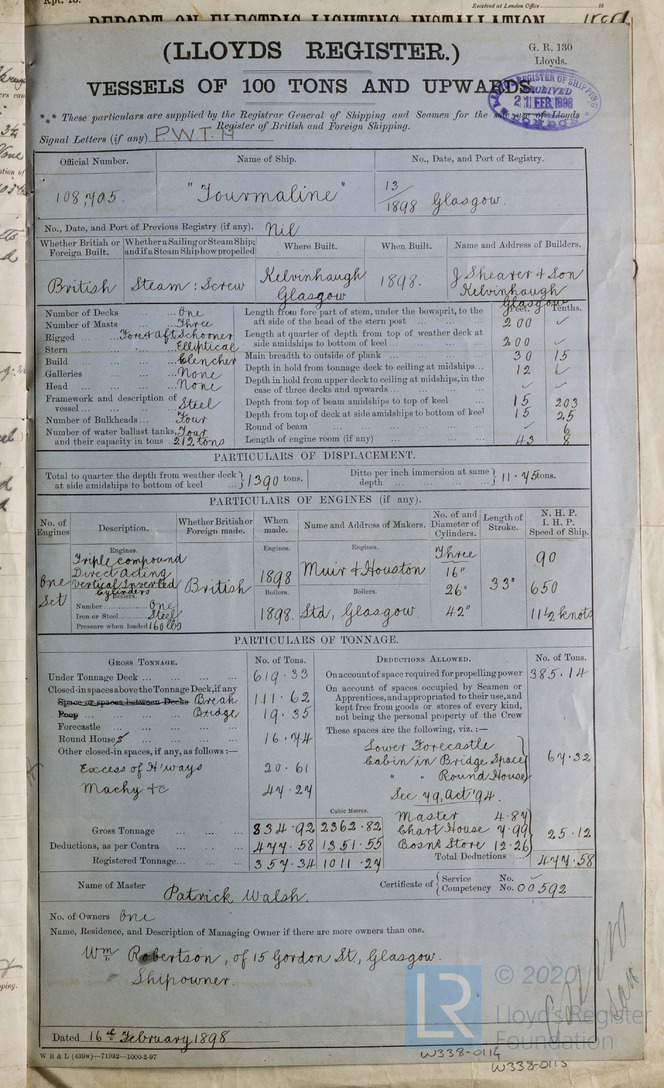 Rpt. 13.
Received at London Office
REPORT ON ELECTRIC LIGHTING INSTALLATION
(LLOYDS REGISTER.)
G. R. 130
Lloyds.
VESSELS OF 100 TONS AND UPWARDS.
REGISTER OF SHIPPING
RECEIVED
21 FEB 1898
LONDON
*** These particulars are supplied by the Registrar General of Shipping and Seamen for the sole use of Lloyds
Register of British and Foreign Shipping.
Signal Letters (if any) P.W.T.H
Official Number. Name of Ship. No., Date, and Port of Registry.
108,705. "Tourmaline" 13/1898 Glasgow.
No., Date, and Port of Previous Registry (if any). Nil
Whether British or Foreign Built. Whether a Sailing or Steam Ship; and if a Steam Ship how propelled Where Built. When Built. Name and Address of Builders.
British Steam: Screw Kelvinhaugh Glasgow 1898. J Shearer & Son Kelvinhaugh Glasgow
Feet. Tenths.
Number of Decks ... One
Number of Masts ... Three
Rigged ... Fore & Aft Schooner
Stern ... Elliptical
Build ... Clencher
Galleries ... None
Head ... None
Framework and description of vessel ... Steel
Number of Bulkheads ... Four
Number of water ballast tanks, Four
and their capacity in tons 212 tons
Length from fore part of stem, under the bowsprit, to the aft side of the head of the stern post ... 200 ✓
Length at quarter of depth from top of weather deck at side amidships to bottom of keel ... 200 ✓
Main breadth to outside of plank ... 30 15
Depth in hold from tonnage deck to ceiling at midships ... 12 ✓
Depth in hold from upper deck to ceiling at midships, in the case of three decks and upwards ... ✓ ✓
Depth from top of beam amidships to top of keel ... 15 203
Depth from top of deck at side amidships to bottom of keel 15 25
Round of beam ... ✓ 6
Length of engine room (if any) ... 43 8
PARTICULARS OF DISPLACEMENT.
Total to quarter the depth from weather deck at side amidships to bottom of keel ... } 1390 tons. Ditto per inch immersion at same depth ... } 11.45 tons.
PARTICULARS OF ENGINES (if any).
No. of Engines Description. Whether British or Foreign made. When made. Name and Address of Makers. No. of and Diameter of Cylinders. Length of Stroke. N. H. P. I. H. P. Speed of Ship.
Engines. Engines. Engines.
One Set Triple compound Direct Acting Vertical Inverted Cylinders British 1898 Muir & Houston Three 16" 26" 42" 33" 90 650 11½ knots
Boilers. Boilers. Boilers.
Number One
Iron or Steel Steel
Pressure when loaded 160 lbs
1898. Ltd, Glasgow
PARTICULARS OF TONNAGE.
GROSS TONNAGE. No. of Tons.
Under Tonnage Deck ... 619.33
Closed-in spaces above the Tonnage Deck, if any
Space or spaces between Decks Break 111.62
Poop ... Bridge 19.35
Forecastle ...
Round Houses ... 16.74
Other closed-in spaces, if any, as follows:—
Excess of H'ways 20.61
Machy &c 47.27
Cubic Metres.
Gross Tonnage ... 834.92 2362.82
Deductions, as per Contra ... 477.58 1351.55
Registered Tonnage ... 357.34 1011.27
DEDUCTIONS ALLOWED. No. of Tons.
On account of space required for propelling power 385.14
On account of spaces occupied by Seamen or Apprentices, and appropriated to their use, and kept free from goods or stores of every kind, not being the personal property of the Crew
These spaces are the following, viz.:—
Lower Forecastle
Cabin in Bridge Space
" " Round House
67.32
Sec 79, Act '94.
Master 4.87
Chart House 7.99
Bosns Store 12.26
25.12
Total Deductions 477.58
Name of Master Patrick Walsh. Certificate of { Service No. ✓ Competency No. 00592
No. of Owners One
Name, Residence, and Description of Managing Owner if there are more owners than one.
Wm Robertson, of 15 Gordon St, Glasgow.
Shipowner.
Dated 16th February 1898
W B & L (439w)—71932—1000-2-97
LR
© 2020
Lloyd's Register
Foundation
W338-0114
W338-0113